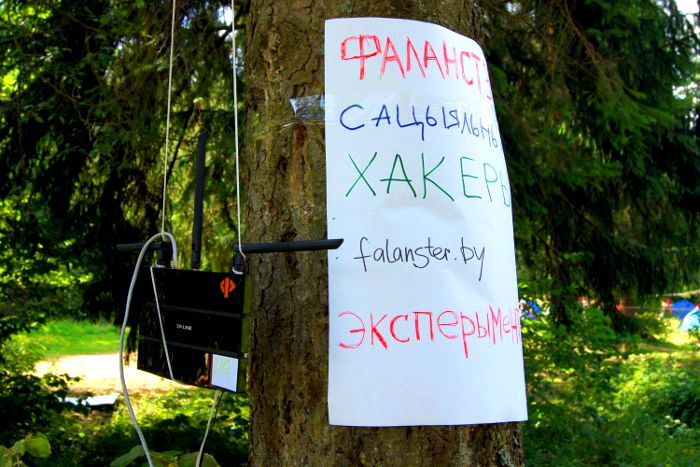 ФАЛАНСТЭ
САЦЫЯЛЬНЫ
ХАКЕРЫ
falanster.by
ЭКСПЕРЫМЕНТ
TP-LINK